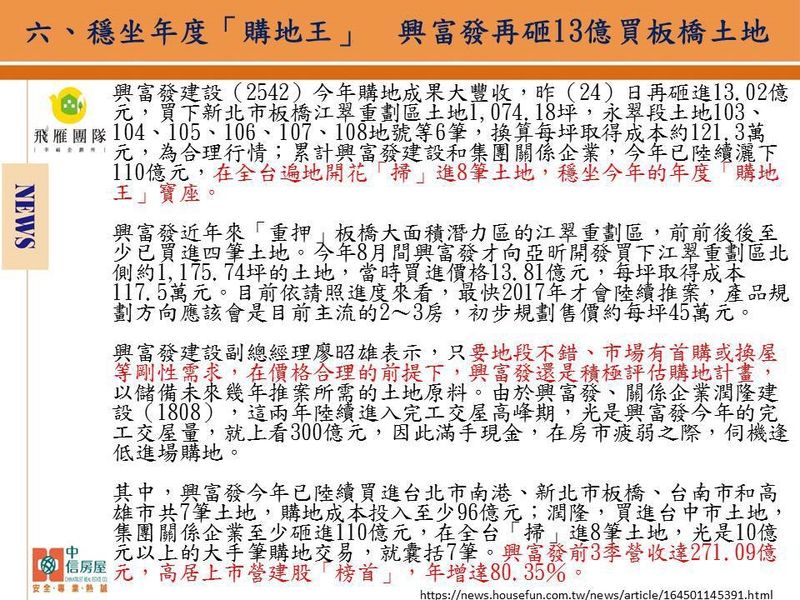 六、穩坐年度「購地王」　興富發再砸13億買板橋土地
飛雁團隊
NEWS
興富發建設（2542）今年購地成果大豐收，昨（24）日再砸進13.02億
元，買下新北市板橋江翠重劃區土地1,074.18坪，永翠段土地103、
104、105、106、107、108地號等6筆，換算每坪取得成本約121.3萬
元，為合理行情；累計興富發建設和集團關係企業，今年已陸續灑下
110億元，在全台遍地開花「掃」進8筆土地，穩坐今年的年度「購地
王」寶座。
興富發近年來「重押」板橋大面積潛力區的江翠重劃區，前前後後至
少已買進四筆土地。今年8月間興富發才向亞昕開發買下江翠重劃區北
側約1,175.74坪的土地，當時買進價格13.81億元，每坪取得成本
117.5萬元。目前依請照進度來看，最快2017年才會陸續推案，產品規
劃方向應該會是目前主流的2～3房，初步規劃售價約每坪45萬元。
興富發建設副總經理廖昭雄表示，只要地段不錯、市場有首購或換屋
等剛性需求，在價格合理的前提下，興富發還是積極評估購地計畫，
以儲備未來幾年推案所需的土地原料。由於興富發、關係企業潤隆建
設（1808），這兩年陸續進入完工交屋高峰期，光是興富發今年的完
工交屋量，就上看300億元，因此滿手現金，在房市疲弱之際，伺機逢
低進場購地。
其中，興富發今年已陸續買進台北市南港、新北市板橋、台南市和高
雄市共7筆土地，購地成本投入至少96億元；潤隆，買進台中市土地，
集團關係企業至少砸進110億元，在全台「掃」進8筆土地，光是10億
元以上的大手筆購地交易，就囊括7筆。興富發前3季營收達271.09億
元，高居上市營建股「榜首」，年增達80.35%。
中信房屋
CHINATRUST REAL ESTATE CO.
安全・專業・熱誠
https://news.housefun.com.tw/news/article/164501145391.html